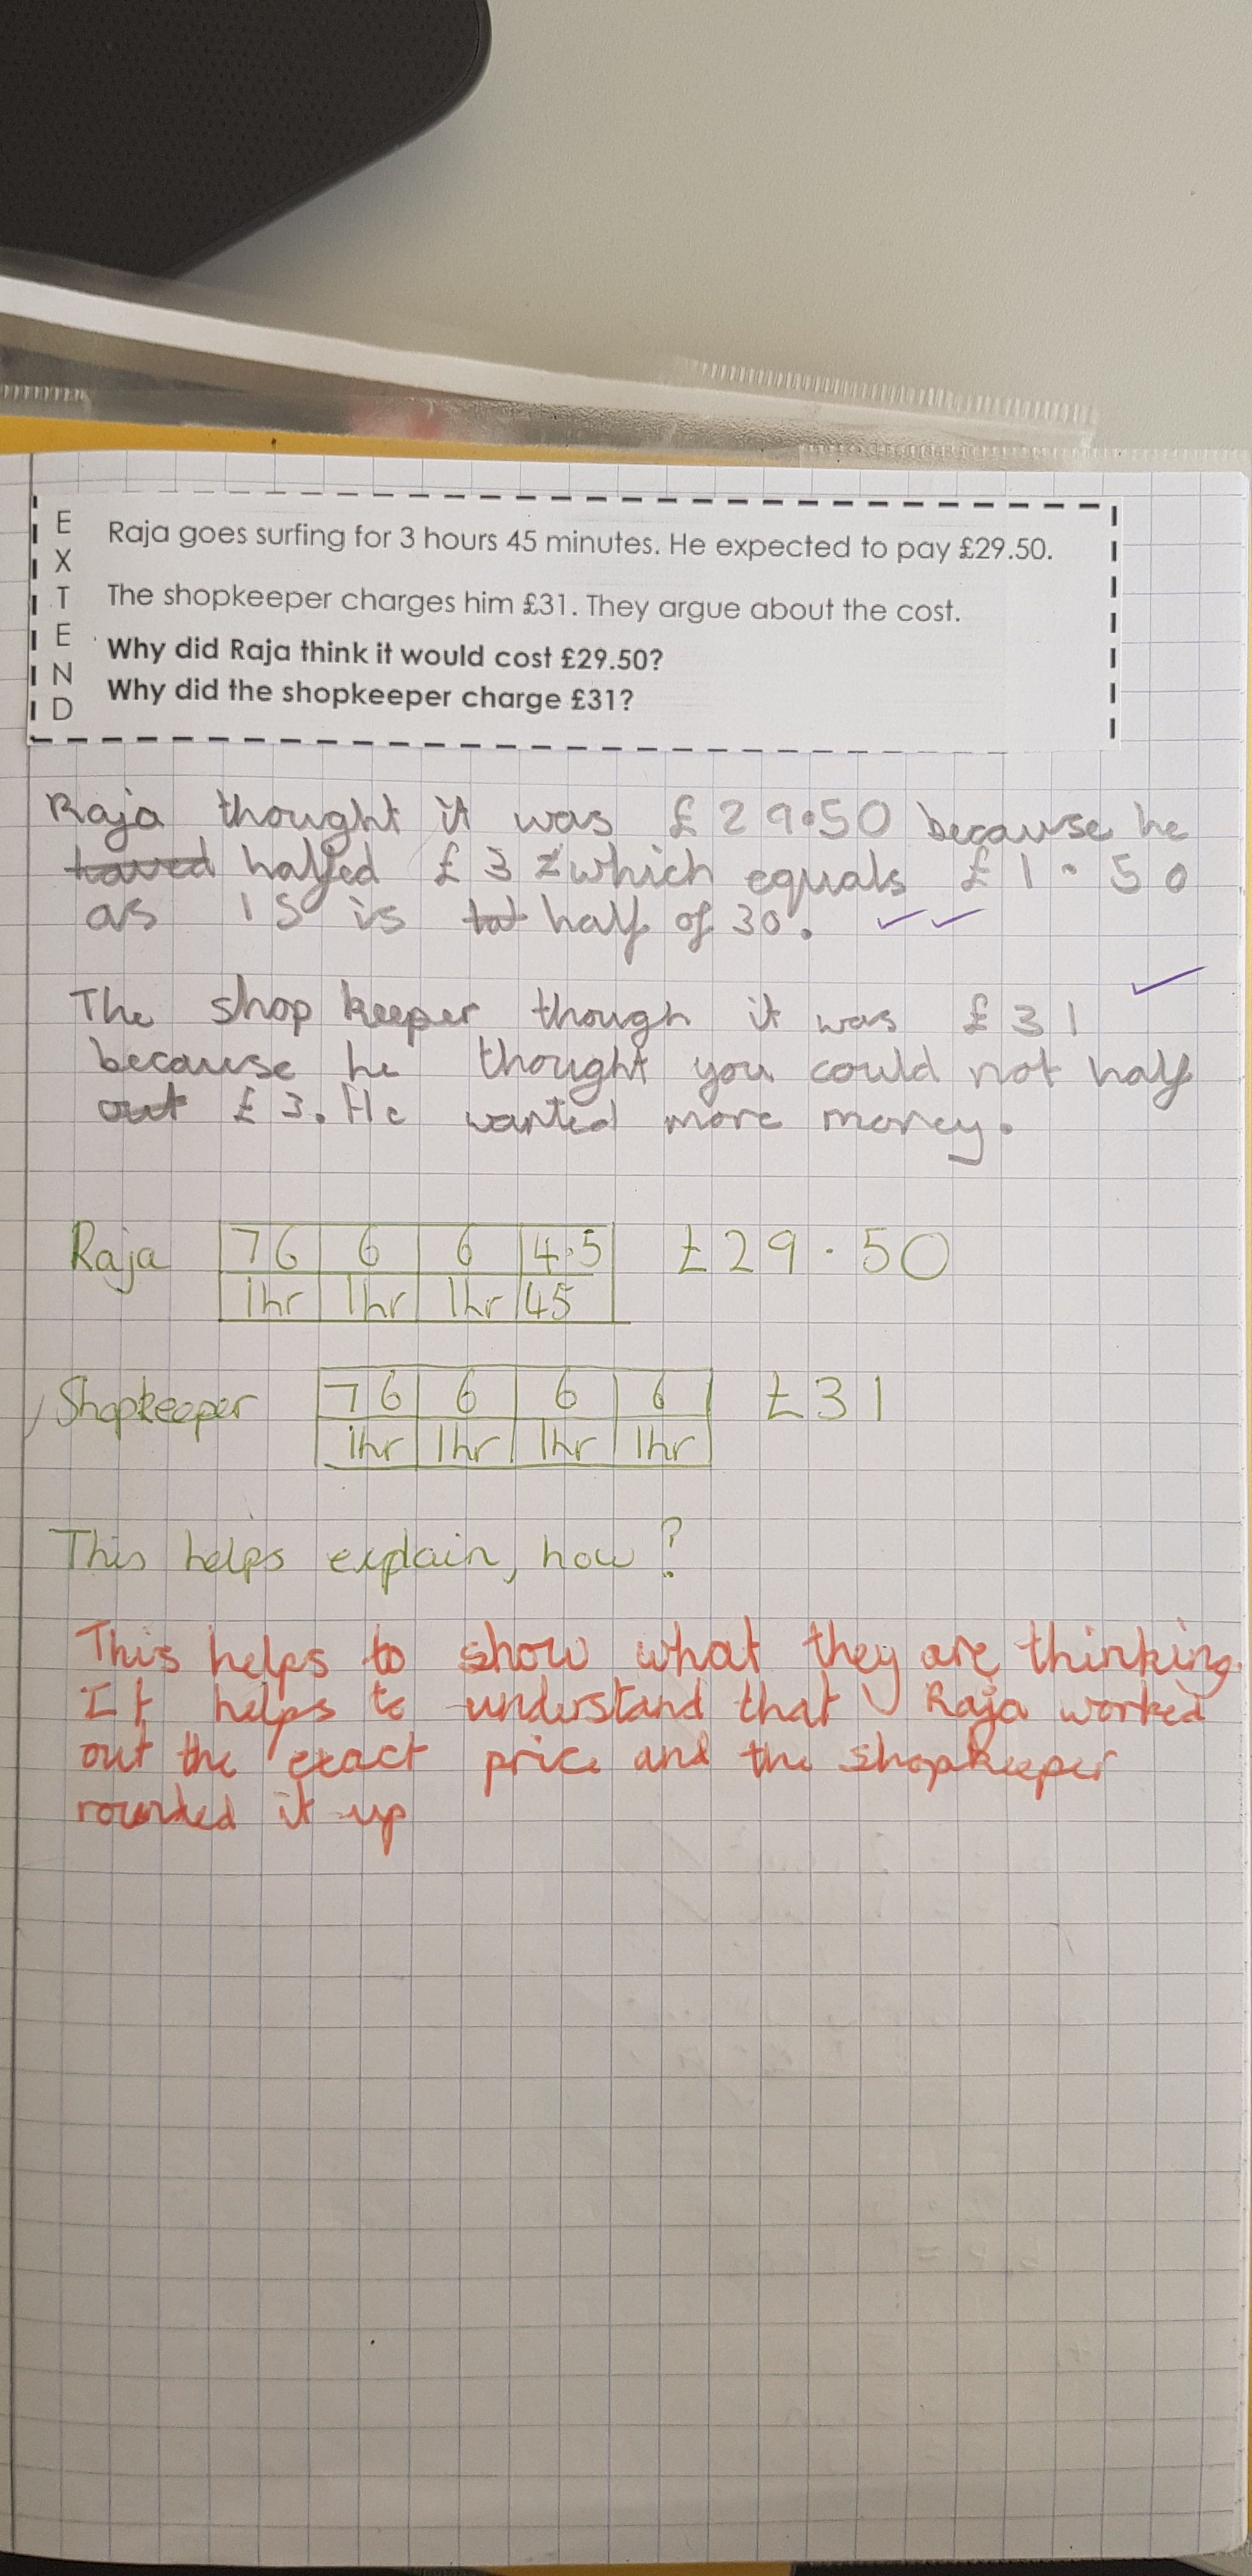 EXTEND
Raja goes surfing for 3 hours 45 minutes. He expected to pay £29.50.
The shopkeeper charges him £31. They argue about the cost.
Why did Raja think it would cost £29.50?
Why did the shopkeeper charge £31?
Raja thought it was £29.50 because he
halfed £3 which equals £1.50
as 15 is half of 30.
The shop keeper though it was £31
because he thought you could not half
£3. He wanted more money.
Raja 7 6 6 6 4.5 £29.50
1hr 1hr 1hr 45
Shopkeeper 7 6 6 6 6 £31
1hr 1hr 1hr 1hr
This helps explain, how?
This helps to show what they are thinking.
It helps to understand that Raja worked
out the exact price and the shopkeeper
rounded it up